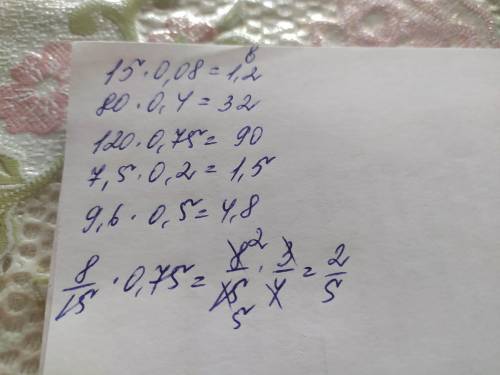 15 · 0,08 = 1,2
80 · 0,4 = 32
120 · 0,75 = 90
7,5 · 0,2 = 1,5
9,6 · 0,5 = 4,8
8/15 · 0,75 = 8²/15₅ · 3/4 = 2/5